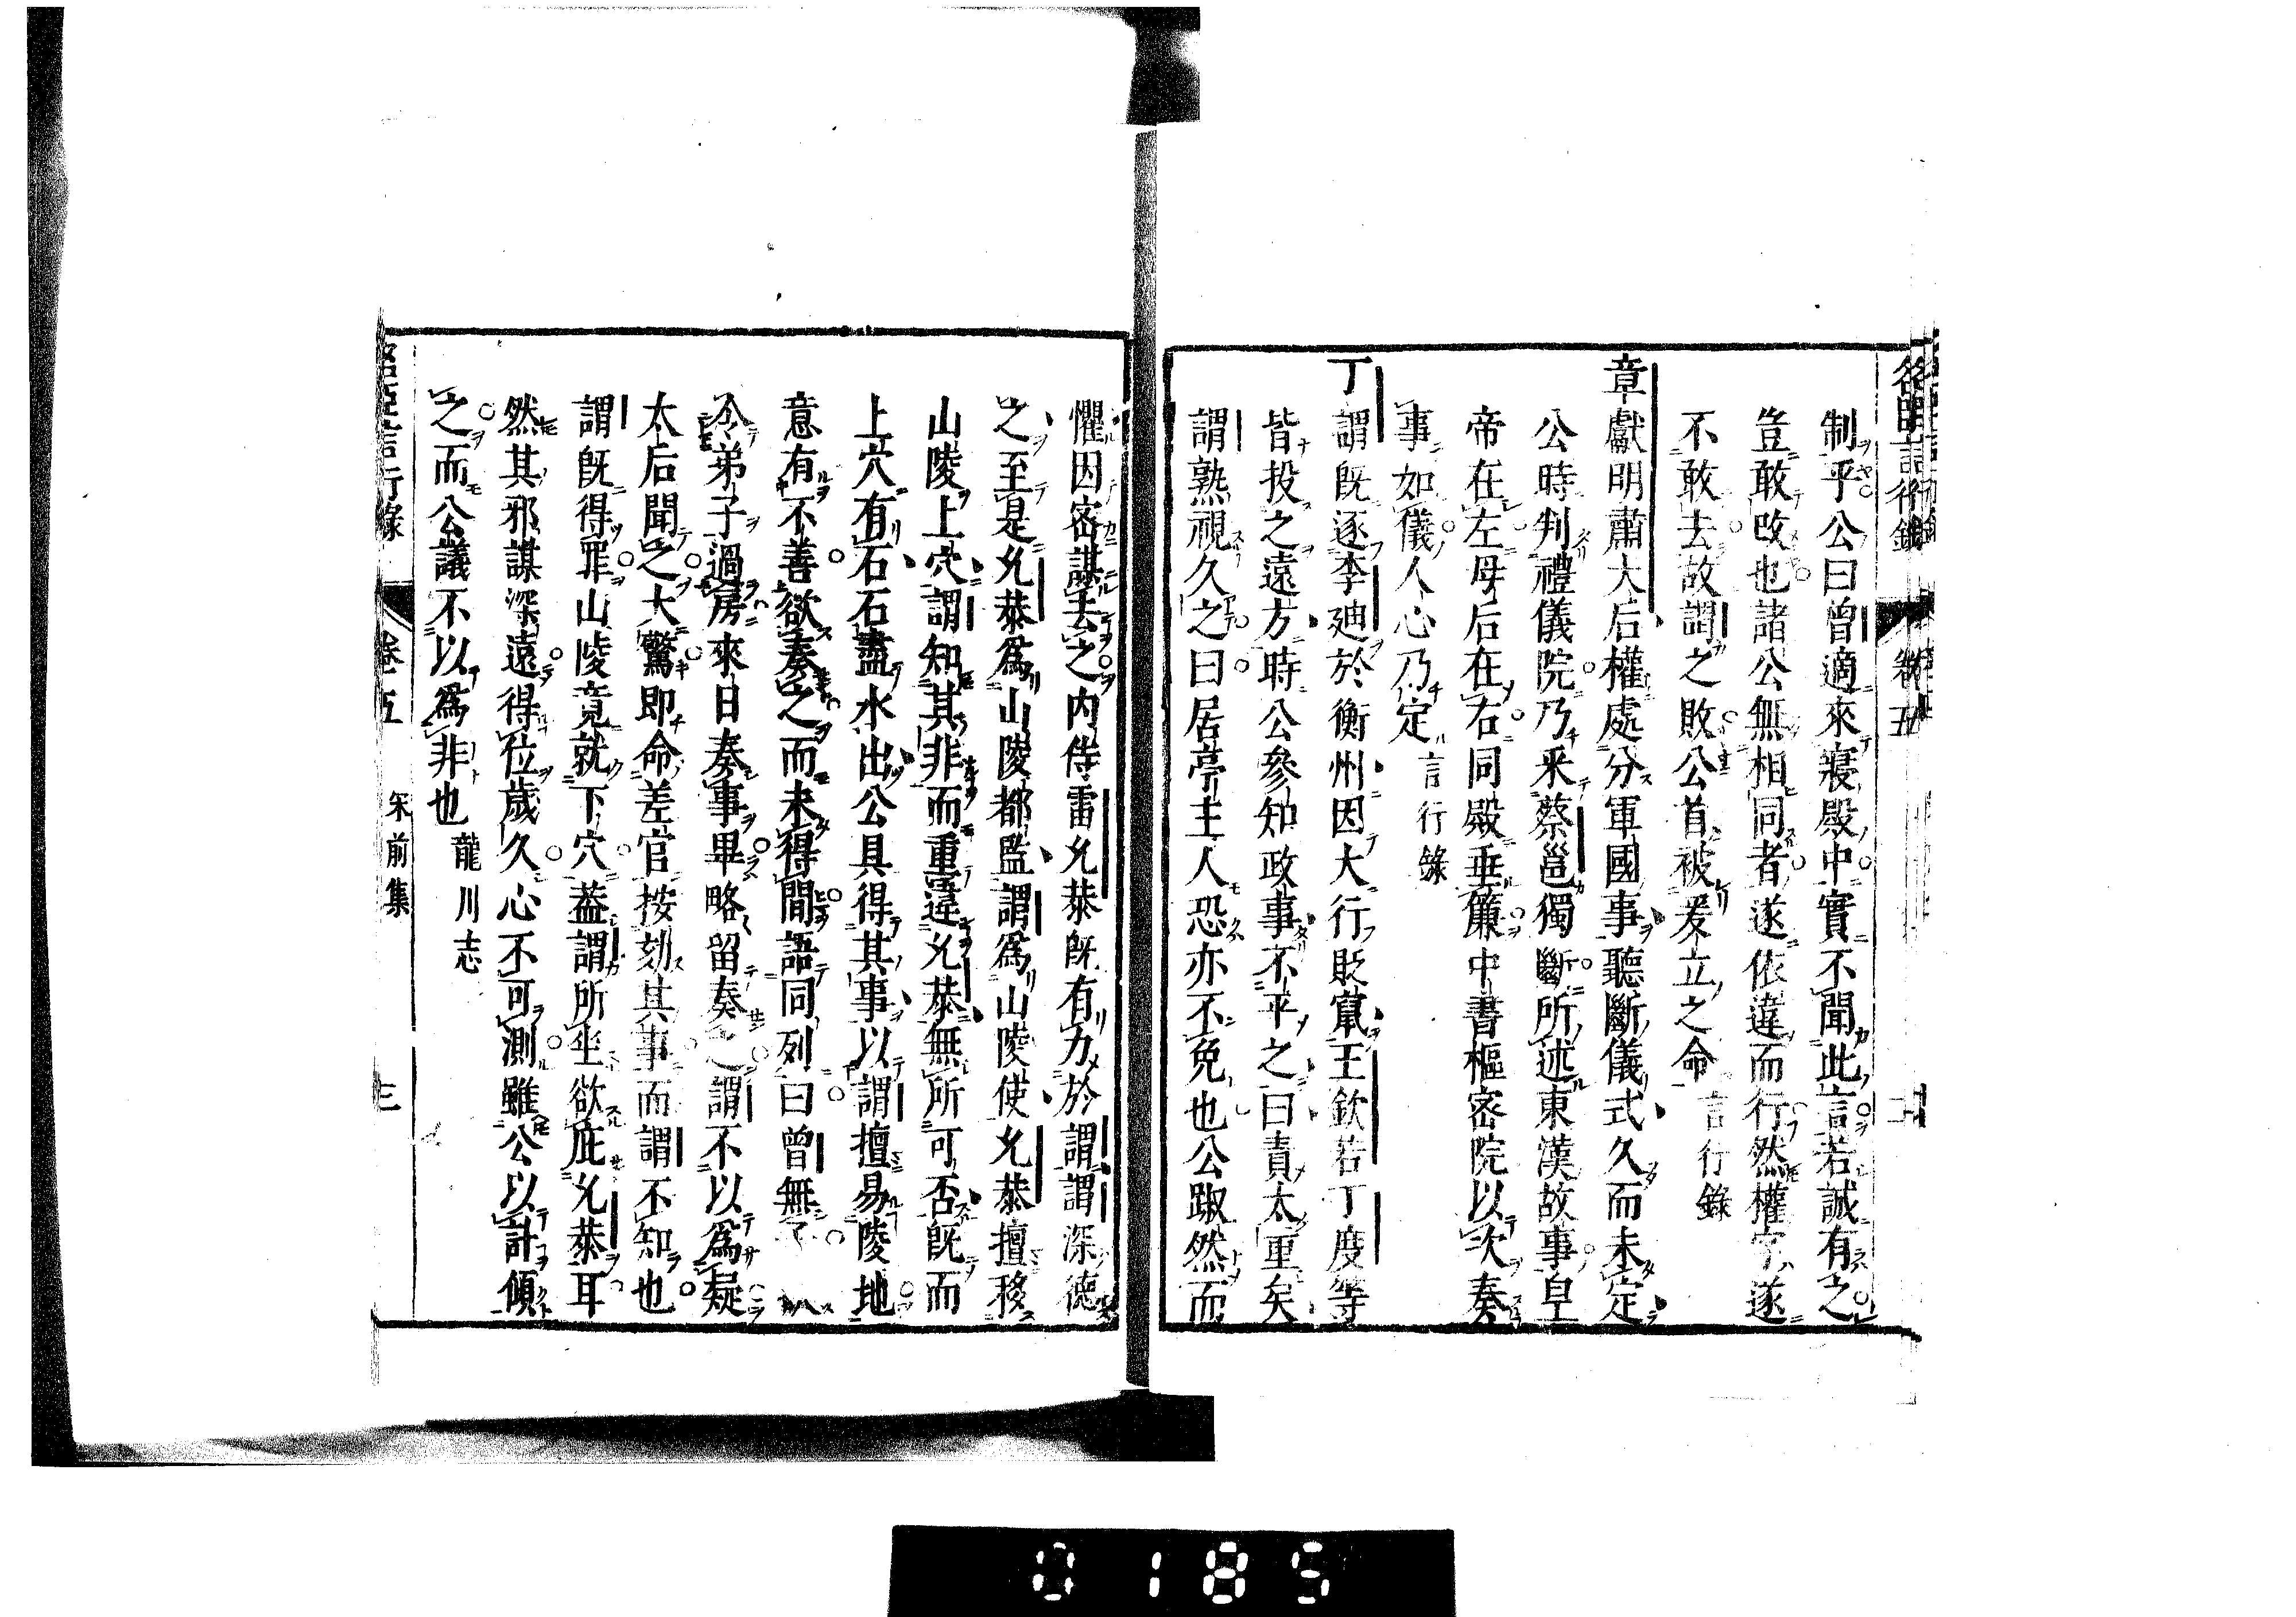 名臣言行錄 卷五 二
制乎公曰曾適來寢殿中實不聞此言若誠有之
豈敢改也諸公無相同者遂依違而行然權字遂
不敢去故謂之敗公首被爰立之命 言行錄
章獻明肅大后權處分軍國事聽斷儀式久而未定
公時判禮儀院乃采蔡邕獨斷所述東漢故事皇
帝在左母后在右同殿垂簾中書樞密院以次奏
事如儀人心乃定 言行錄
丁謂既逐李廸於衡州因大行貶竄王欽若丁度等
皆投之遠方時公參知政事不平之曰責太重矣
謂熟視久之曰居亭主人恐亦不免也公踧然而
懼因密謀去之内侍雷允恭既有力於謂謂深德
之至是允恭爲山陵都監謂爲山陵使允恭擅移
山陵上穴謂知其非而重違允恭無所可否既而
上穴有石石盡水出公具得其事以謂擅易陵地
意有不善欲奏之而未得間語同列曰曾無子
令弟子過房來日奏事畢略留奏之謂不以爲疑
太后聞之大驚即命差官按劾其事而謂不知也
謂既得罪山陵竟就下穴蓋謂所坐欲庇允恭耳
然其邪謀深遠得位歲久心不可測雖公以計傾
之而公議不以爲非也 龍川志
名臣言行錄 卷五 宋前集 三
0185